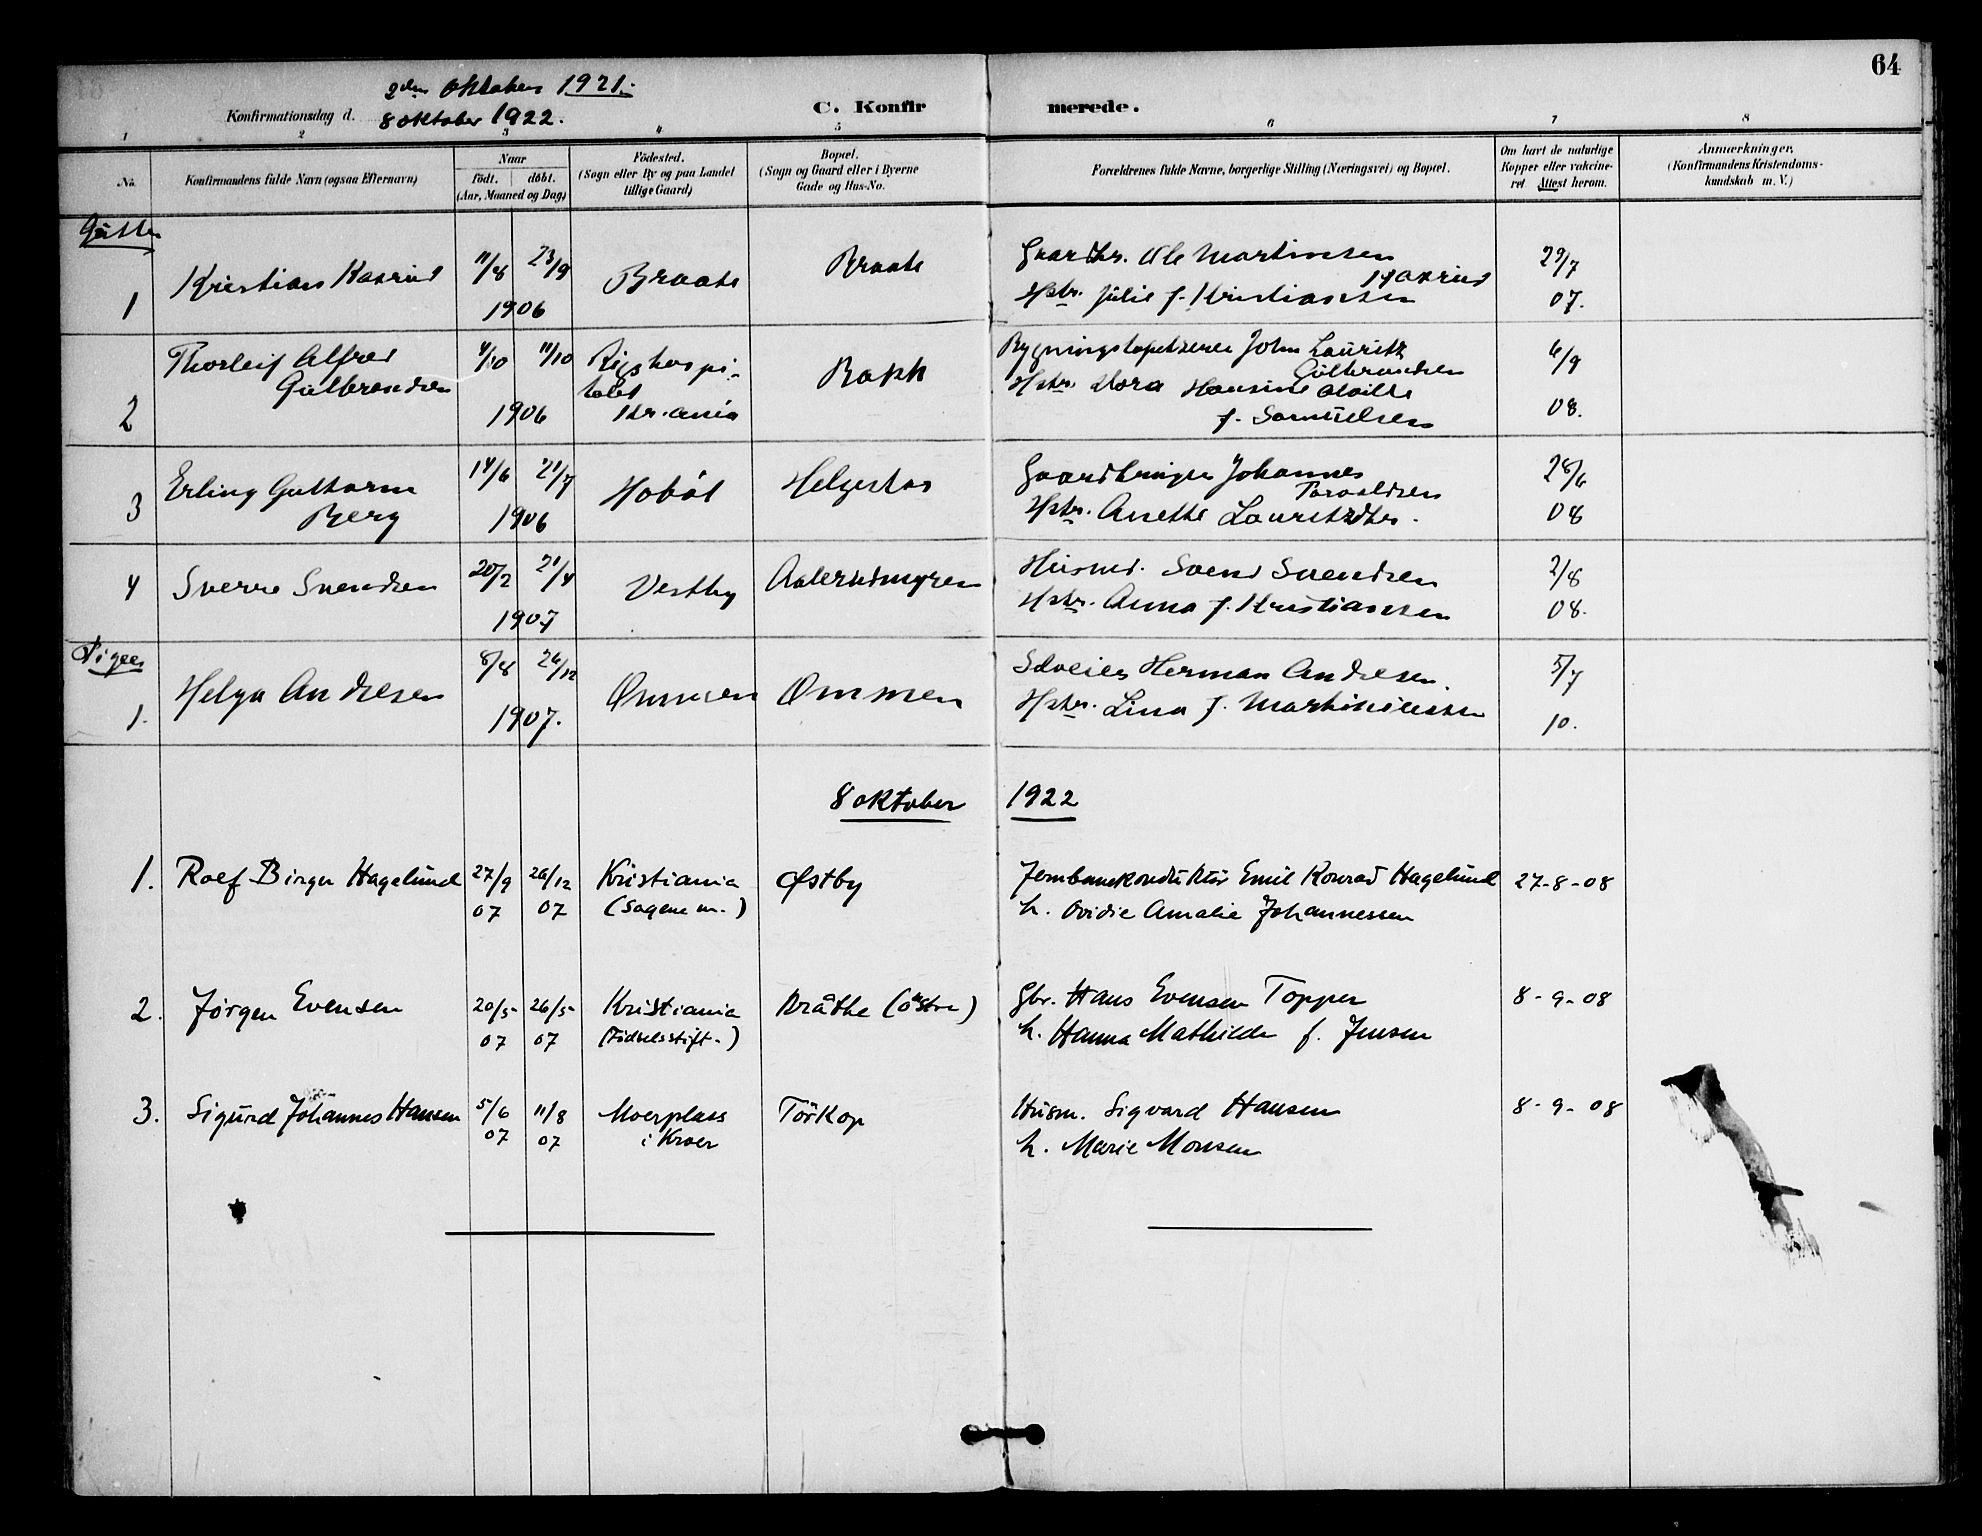 64
2den Oktober 1921.
Konfirmationsdag d. 8 oktober 1922.
C. Konfirmerede.
1 2 3 4 5 6 7 8
No.
Konfirmandens fulde Navn (ogsaa Efternavn)
Naar
födt. döbt.
(Aar, Maaned og Dag)
Födested.
(Sogn eller By og paa Landet
tillige Gaard)
Bopæl.
(Sogn og Gaard eller i Byerne
Gade og Hus-No.
Forældrenes fulde Navne, borgerlige Stilling (Næringsvei) og Bopæl.
Om havt de naturlige
Kopper eller vakcine-
ret. Attest herom.
Anmærkninger.
(Konfirmandens Kristendoms-
kundskab m. V.)
Gutter
1 Kristian Haxrud 11/8 23/9 1906 Braate Braate
Gaardbr. Ole Martinsen
Haxrud
Hstr. Julie f. Kristiansen
29/7
07.
2 Thorleif Alfred
Gulbrandsen
4/10 11/10
1906
Rigshospi-
talet
Kr.ania
Bakk
Bygningstapetserer John Lauritz
Gulbrandsen
Hstr. Dora Hansine
f. Samuelsen
6/9
08.
3 Erling Guttorm
Berg
14/6 21/7
1906
Hobøl
Helgestad
Gaardbruger Johannes
Taraldsen
Hstr. Anette Lauritzdtr.
28/6
08
4 Sverre Svendsen 20/2 21/4
1907
Vestby
Husmd. Svend Svendsen
Hstr. Anna f. Kristiansen
2/8
08.
Piger
1. Helga Andresen 8/8 26/12
1907.
Ommen Ommen
Selveier Herman Andresen.
Hstr. Lina f. Martiniussen
5/7
10.
8 oktober 1922
1. Rolf Birger Hagelund 27/9 26/12 Kristiania Østby
07 07 (Sagene m.)
Jernbanekonduktør Emil Konrad Hagelund 27-8-08
h. Ovidie Amalie Johannessen
2. Jørgen Evensen 20/5 26/5 Kristiania Kråthe (östre)
07 07 (Fødselsstift.)
Gbr. Hans Evensen Topper 8-9-08
h. Hanna Mathilde f. Jensen
3. Sigurd Johannes Hansen 5/6 11/8 Moerplass Törkop
07 07 i Kroer
Husm. Sigvard Hansen 8-9-08
h. Marie Monsen